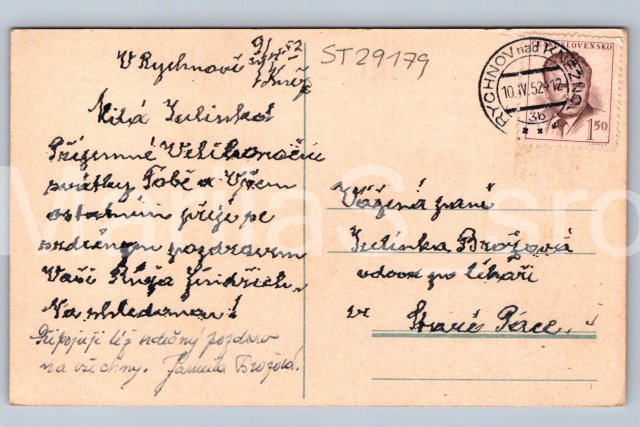 V Rychnově 9/IV 52
n/Kněž.
ST29179
Milá Julinko!
Příjemné Velikonoční
svátky Tobě a Všem
ostatním přeje se
srdečným pozdravem
Vaši Růža Jindřich.
Na shledanou!
Připojuji též srdečný pozdrav
na všechny. Jarmila Brožová.
ČESKOSLOVENSKO
1.50
RYCHNOV nad KNĚŽNOU
10.IV.52-12
3b
Vážená paní
Julinka Brožová
vdova po lékaři
ve
Staré Pace